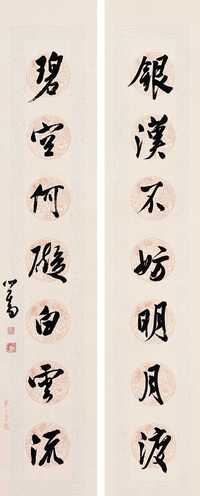 銀漢不妨明月渡
碧空何礙白雲流
心畬